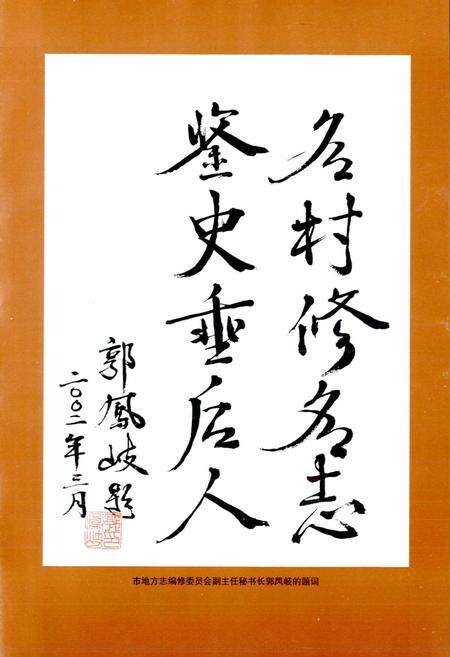 名村修名志
鉴史垂后人
郭鳳岐题
二〇〇二年三月
市地方志编修委员会副主任秘书长郭凤岐的题词